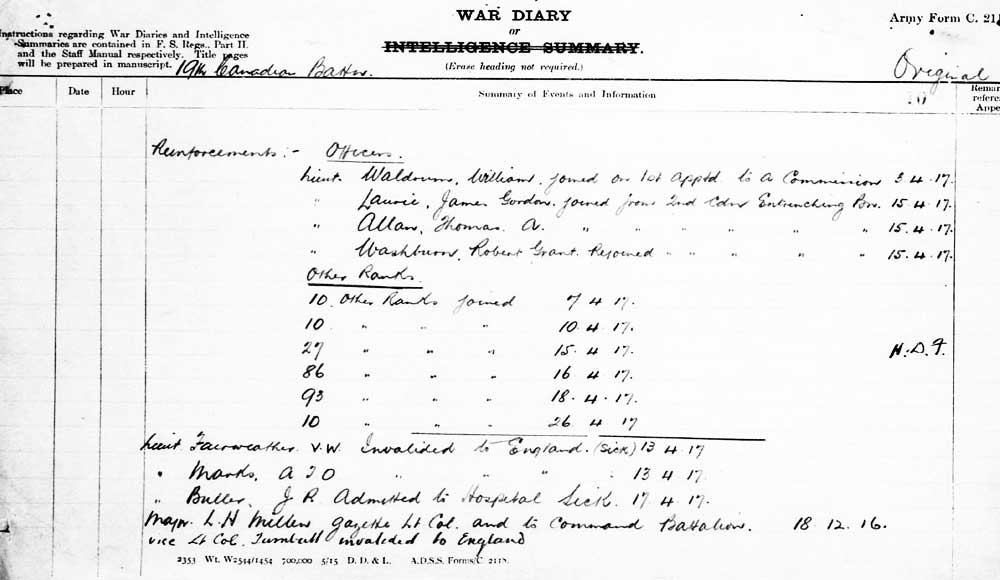 WAR DIARY
or
INTELLIGENCE SUMMARY.
(Erase heading not required.)
Army Form C. 211
Instructions regarding War Diaries and Intelligence
Summaries are contained in F. S. Regs., Part II.
and the Staff Manual respectively. Title pages
will be prepared in manuscript.
19th Canadian Battn.
Original
Place Date Hour Summary of Events and Information Remar
refere
Appe
Reinforcements :- Officers.
Lieut. Waldrum, William. joined on 1st Apptd to a Commission 3.4.17.
" Laurie, James Gordon. joined from 2nd Cdn Entrenching Bn. 15.4.17.
" Allan, Thomas A. " " " " " " 15.4.17.
" Washburn, Robert Grant. Rejoined " " " " " 15.4.17.
Other Ranks.
10 Other Ranks joined 7 4 17.
10 " " " 10.4 17.
27 " " " 15.4 17.
H.D.F.
86 " " " 16 4 17.
93 " " " 18.4.17.
10 " " " 26 4 17
Lieut Fairweather. V.W. Invalided to England. (sick) 13 4 17
" Marks, A J O " " " " 13 4 17.
" Buller, J R. Admitted to Hospital Sick. 17 4 17.
Major L.H Millen gazette Lt Col. and to Command Battalion. 18.12.16.
vice Lt Col. Turnbull invalided to England
2353 Wt. W2544/1454 700,000 5/15 D. D. & L. A.D.S.S. Forms/C. 2118.